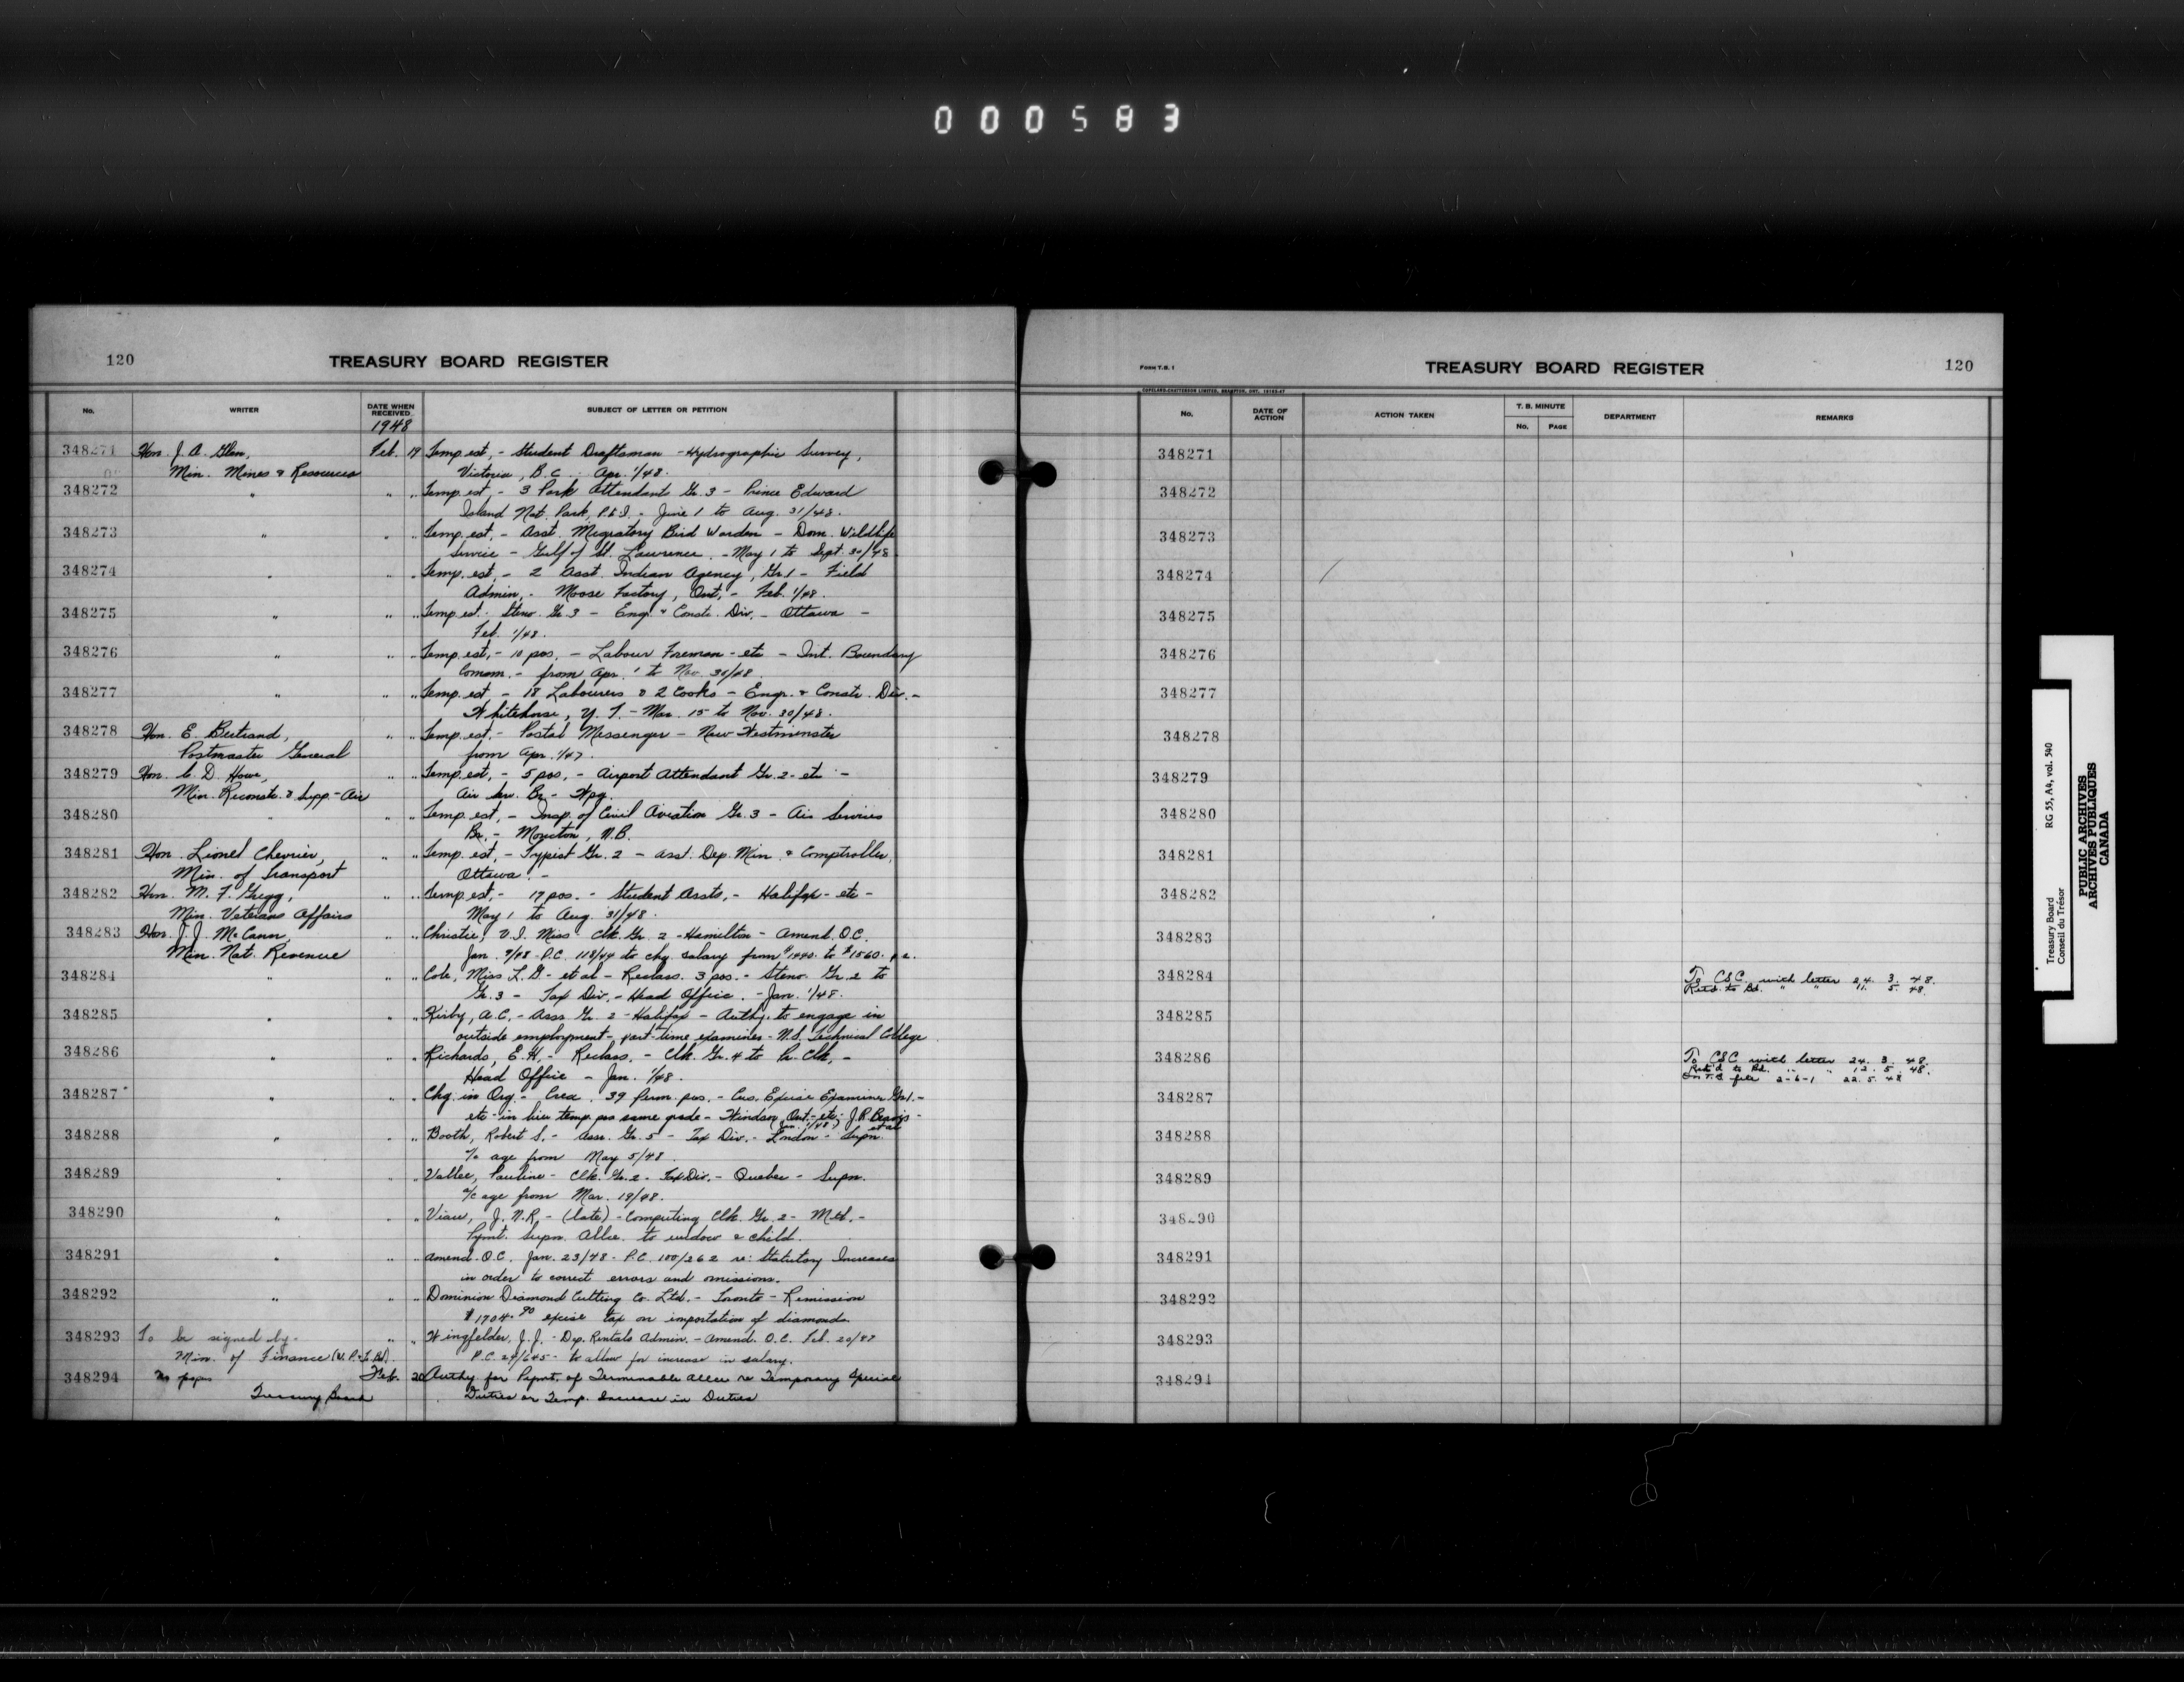 000583
120
TREASURY BOARD REGISTER
No.
WRITER
DATE WHEN RECEIVED
SUBJECT OF LETTER OR PETITION
1948
348271 Hon. J. A. Glen, Feb. 19 Temp. est. - Student Draftsman - Hydrographic Survey,
Min. Mines & Resources Victoria, B.C. Apr. 1/48.
348272 " " " Temp. est. - 3 Park Attendants Gr. 3 - Prince Edward
Island Nat. Park, P.E.I. - June 1 to Aug. 31/48.
348273 " " " Temp. est. - Asst. Migratory Bird Warden - Dom. Wildlife
Service - Gulf of St. Lawrence - May 1 to Sept. 30/48
348274 " " " Temp. est. - 2 Asst. Indian Agency, Gr. 1 - Field
Admin. - Moose Factory, Ont. - Feb. 1/48.
348275 " " " Temp. est. - Steno. Gr. 3 - Eng. & Constr. Div. - Ottawa -
Feb. 1/48.
348276 " " " Temp. est. - 10 pos. - Labour Foreman - etc - Int. Boundary
Comm. - from Apr. 1 to Nov. 30/48
348277 " " " Temp. est. - 18 Labourers & 2 Cooks - Engr. & Constr. Div. -
Whitehorse, Y.T. - Mar. 15 to Nov. 30/48.
348278 Hon. E. Bertrand, " " Temp. est. - Postal Messenger - New Westminster
Postmaster General from Apr. 1/47.
348279 Hon. C. D. Howe, " " Temp. est. - 5 pos. - Airport Attendant Gr. 2 - etc -
Min. Reconstr. & Supp. - Air Air Serv. Br. - Wpg.
348280 " " " Temp. est. - Insp. of Civil Aviation Gr. 3 - Air Services
Br. - Moncton, N.B.
348281 Hon. Lionel Chevrier, " " Temp. est. - Typist Gr. 2 - Asst. Dep. Min. & Comptroller,
Min. of Transport Ottawa. -
348282 Hon. M. F. Gregg, " " Temp. est. - 17 pos. - Student Assts. - Halifax - etc -
Min. Veterans Affairs May 1 to Aug. 31/48.
348283 Hon. J. J. McCann, " " Christie, V. I. Miss - Clk. Gr. 2 - Hamilton - Amend. O.C.
Min. Nat. Revenue Jan. 9/48 - P.C. 118/44 to chg. salary from $1440. to $1560. p.a.
348284 " " " Cole, Miss L. G. - et al - Reclass. 3 pos. - Steno. Gr. 2 to
Gr. 3 - Tax Div. - Head Office. - Jan. 1/48.
348285 " " " Kirby, A.C. - Assr. Gr. 2 - Halifax - Authy. to engage in
outside employment - part-time examiner - N.S. Technical College
348286 " " " Richards, E.H. - Reclass. - Clk. Gr. 4 to Pr. Clk. -
Head Office - Jan. 1/48.
348287 " " " Chg. in Org. - Crea. 39 Perm. pos. - Cus. Excise Examiner Gr. 1. -
etc - in lieu temp. pos same grade - Windsor, Ont. - etc - J. R. Beavis -
et al
348288 " " " Booth, Robert S. - Assr. Gr. 5 - Tax Div. - London - Supn.
a/c age from May 5/48.
348289 " " " Vallee, Pauline - Clk. Gr. 2 - Tax Div. - Quebec - Supn.
a/c age from Mar. 19/48.
348290 " " " Viau, J. N. R. - (late) - Computing Clk. Gr. 2 - Mtl. -
Pymt. Supn. Allce. to widow & child.
348291 " " " Amend. O.C. Jan. 23/48 - P.C. 100/262 re: Statutory Increases
in order to correct errors and omissions.
348292 " " " Dominion Diamond Cutting Co. Ltd. - Toronto - Remission
$1704.90 excise tax on importation of diamonds.
348293 To be signed by - " " Wingfelder, J. J. - Dep. Rentals Admin. - Amend. O.C. Feb. 20/47
Min. of Finance (W.P. & T. Bd). P.C. 24/645 - to allow for increase in salary.
348294 No papers Feb. 20 Authy for Pymt. of Terminable Allce re Temporary Special
Treasury Board Duties or Temp. Increase in Duties
FORM T.B. 1
TREASURY BOARD REGISTER
120
COPELAND-CHATTERSON LIMITED, BRAMPTON, ONT.
No.
DATE OF ACTION
ACTION TAKEN
T. B. MINUTE
No.
PAGE
DEPARTMENT
REMARKS
348271
348272
348273
348274
348275
348276
348277
348278
348279
348280
348281
348282
348283
348284 To CSC with letter 24. 3. 48.
Retd. to Bd. " " 11. 5. 48.
348285
348286 To CSC with letter 24. 3. 48.
Retd to Bd. " " 12. 5. 48.
On T.B file 2-6-1 22. 5. 48
348287
348288
348289
348290
348291
348292
348293
348294
Treasury Board RG 55, A4, vol. 540
Conseil du Trésor
PUBLIC ARCHIVES
ARCHIVES PUBLIQUES
CANADA